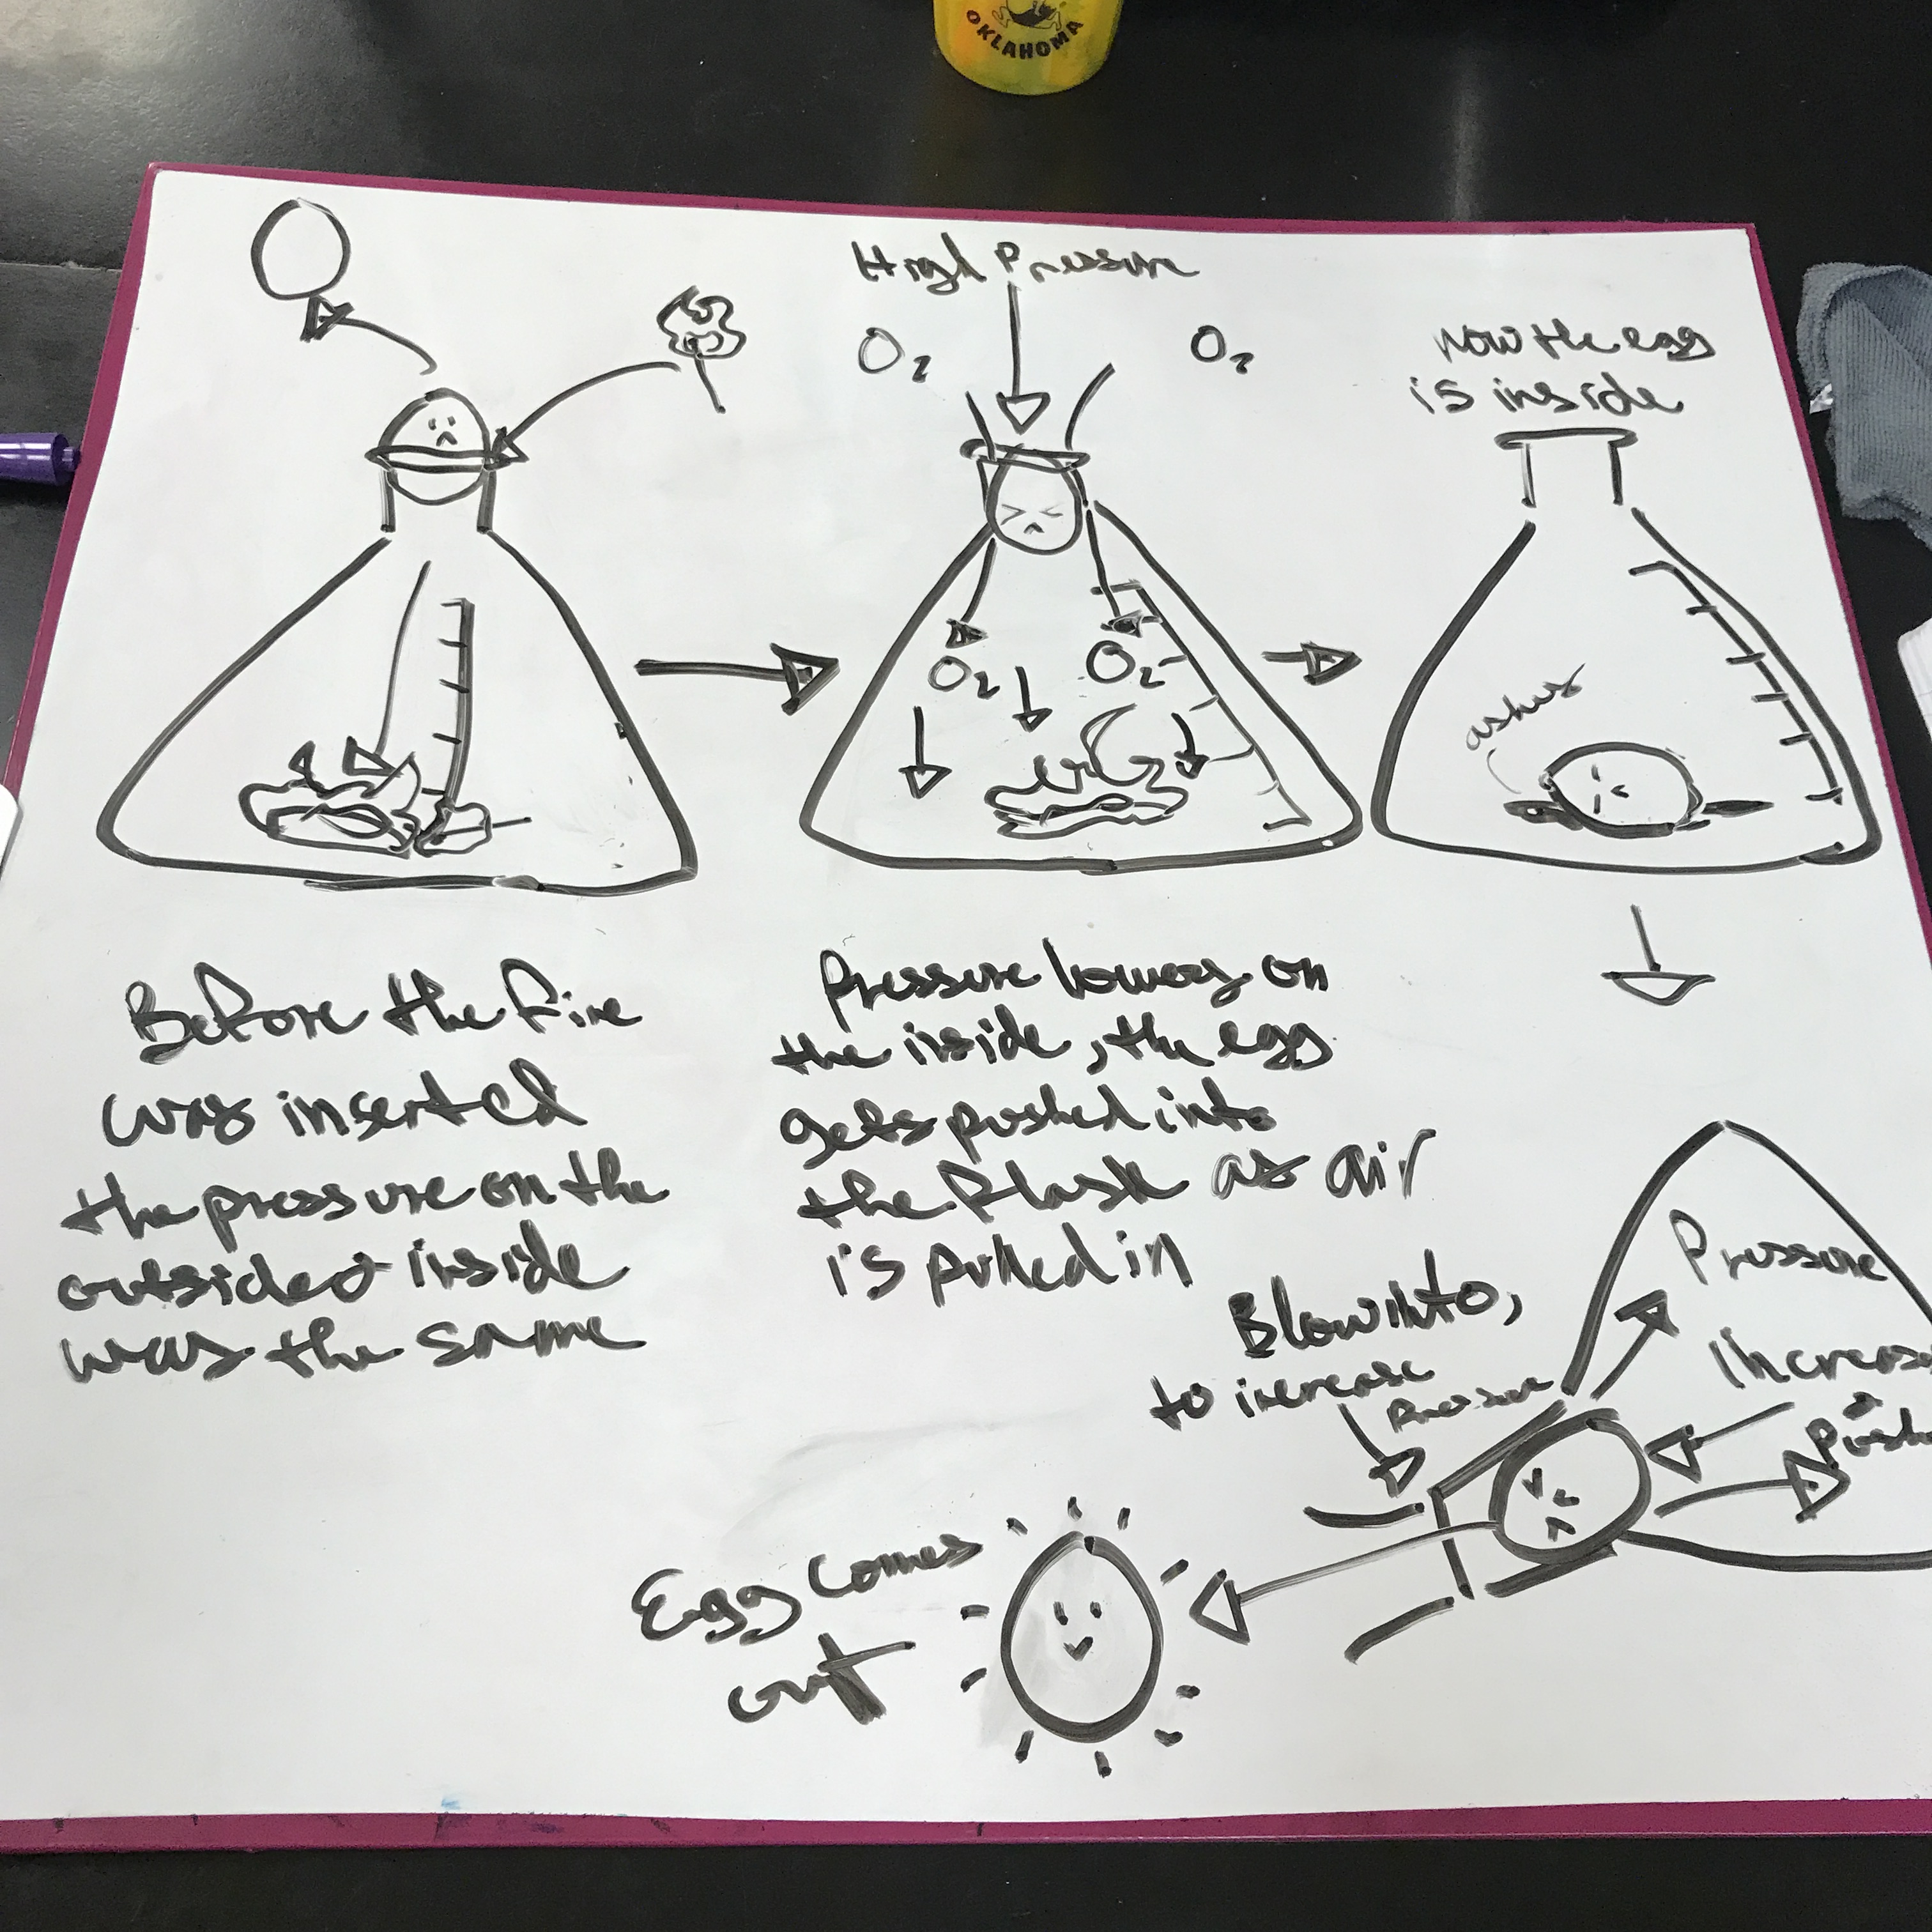 OKLAHOMA
High Pressure
O₂ O₂
Now the egg
is inside
O₂ O₂
ashes
Before the fire
was inserted
the pressure on the
outside & inside
was the same
Pressure lowers on
the inside, the egg
gets pushed into
the flask as air
is pulled in
Blow into,
to increase
Pressure
Pressure
Increase
&
Push
Egg comes
out